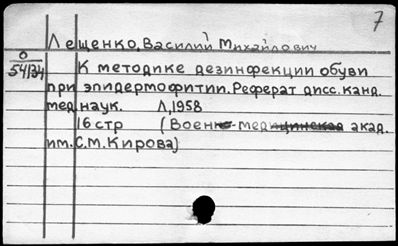 7
Лещенко, Василий Михайлович
О
54/34
К методике дезинфекции обуви
при эпидермофитии. Реферат дисс. канд.
мед. наук. Л, 1958
16 стр (Воен-медицинская акад.
им. С.М. Кирова)